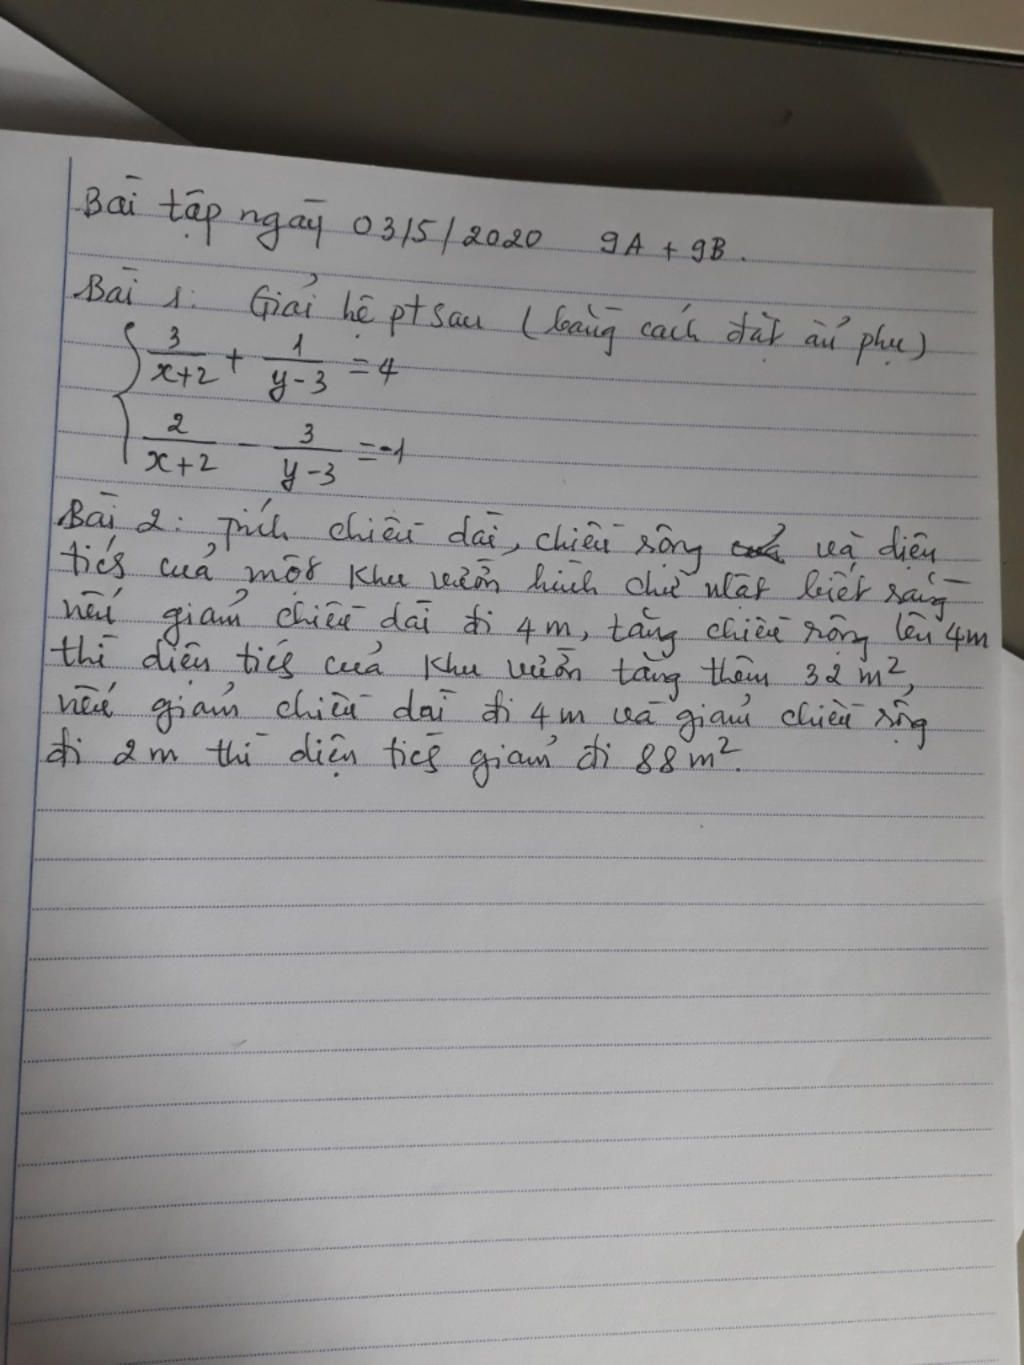 Bài tập ngày 03/5/2020 9A + 9B.
Bài 1: Giải hệ pt sau (bằng cách đặt ẩn phụ)
3/(x+2) + 1/(y-3) = 4
2/(x+2) - 3/(y-3) = -1
Bài 2: Tính chiều dài, chiều rộng và diện
tích của một khu vườn hình chữ nhật biết rằng
nếu giảm chiều dài đi 4m, tăng chiều rộng lên 4m
thì diện tích của khu vườn tăng thêm 32 m²,
nếu giảm chiều dài đi 4m và giảm chiều rộng
đi 2m thì diện tích giảm đi 88m².